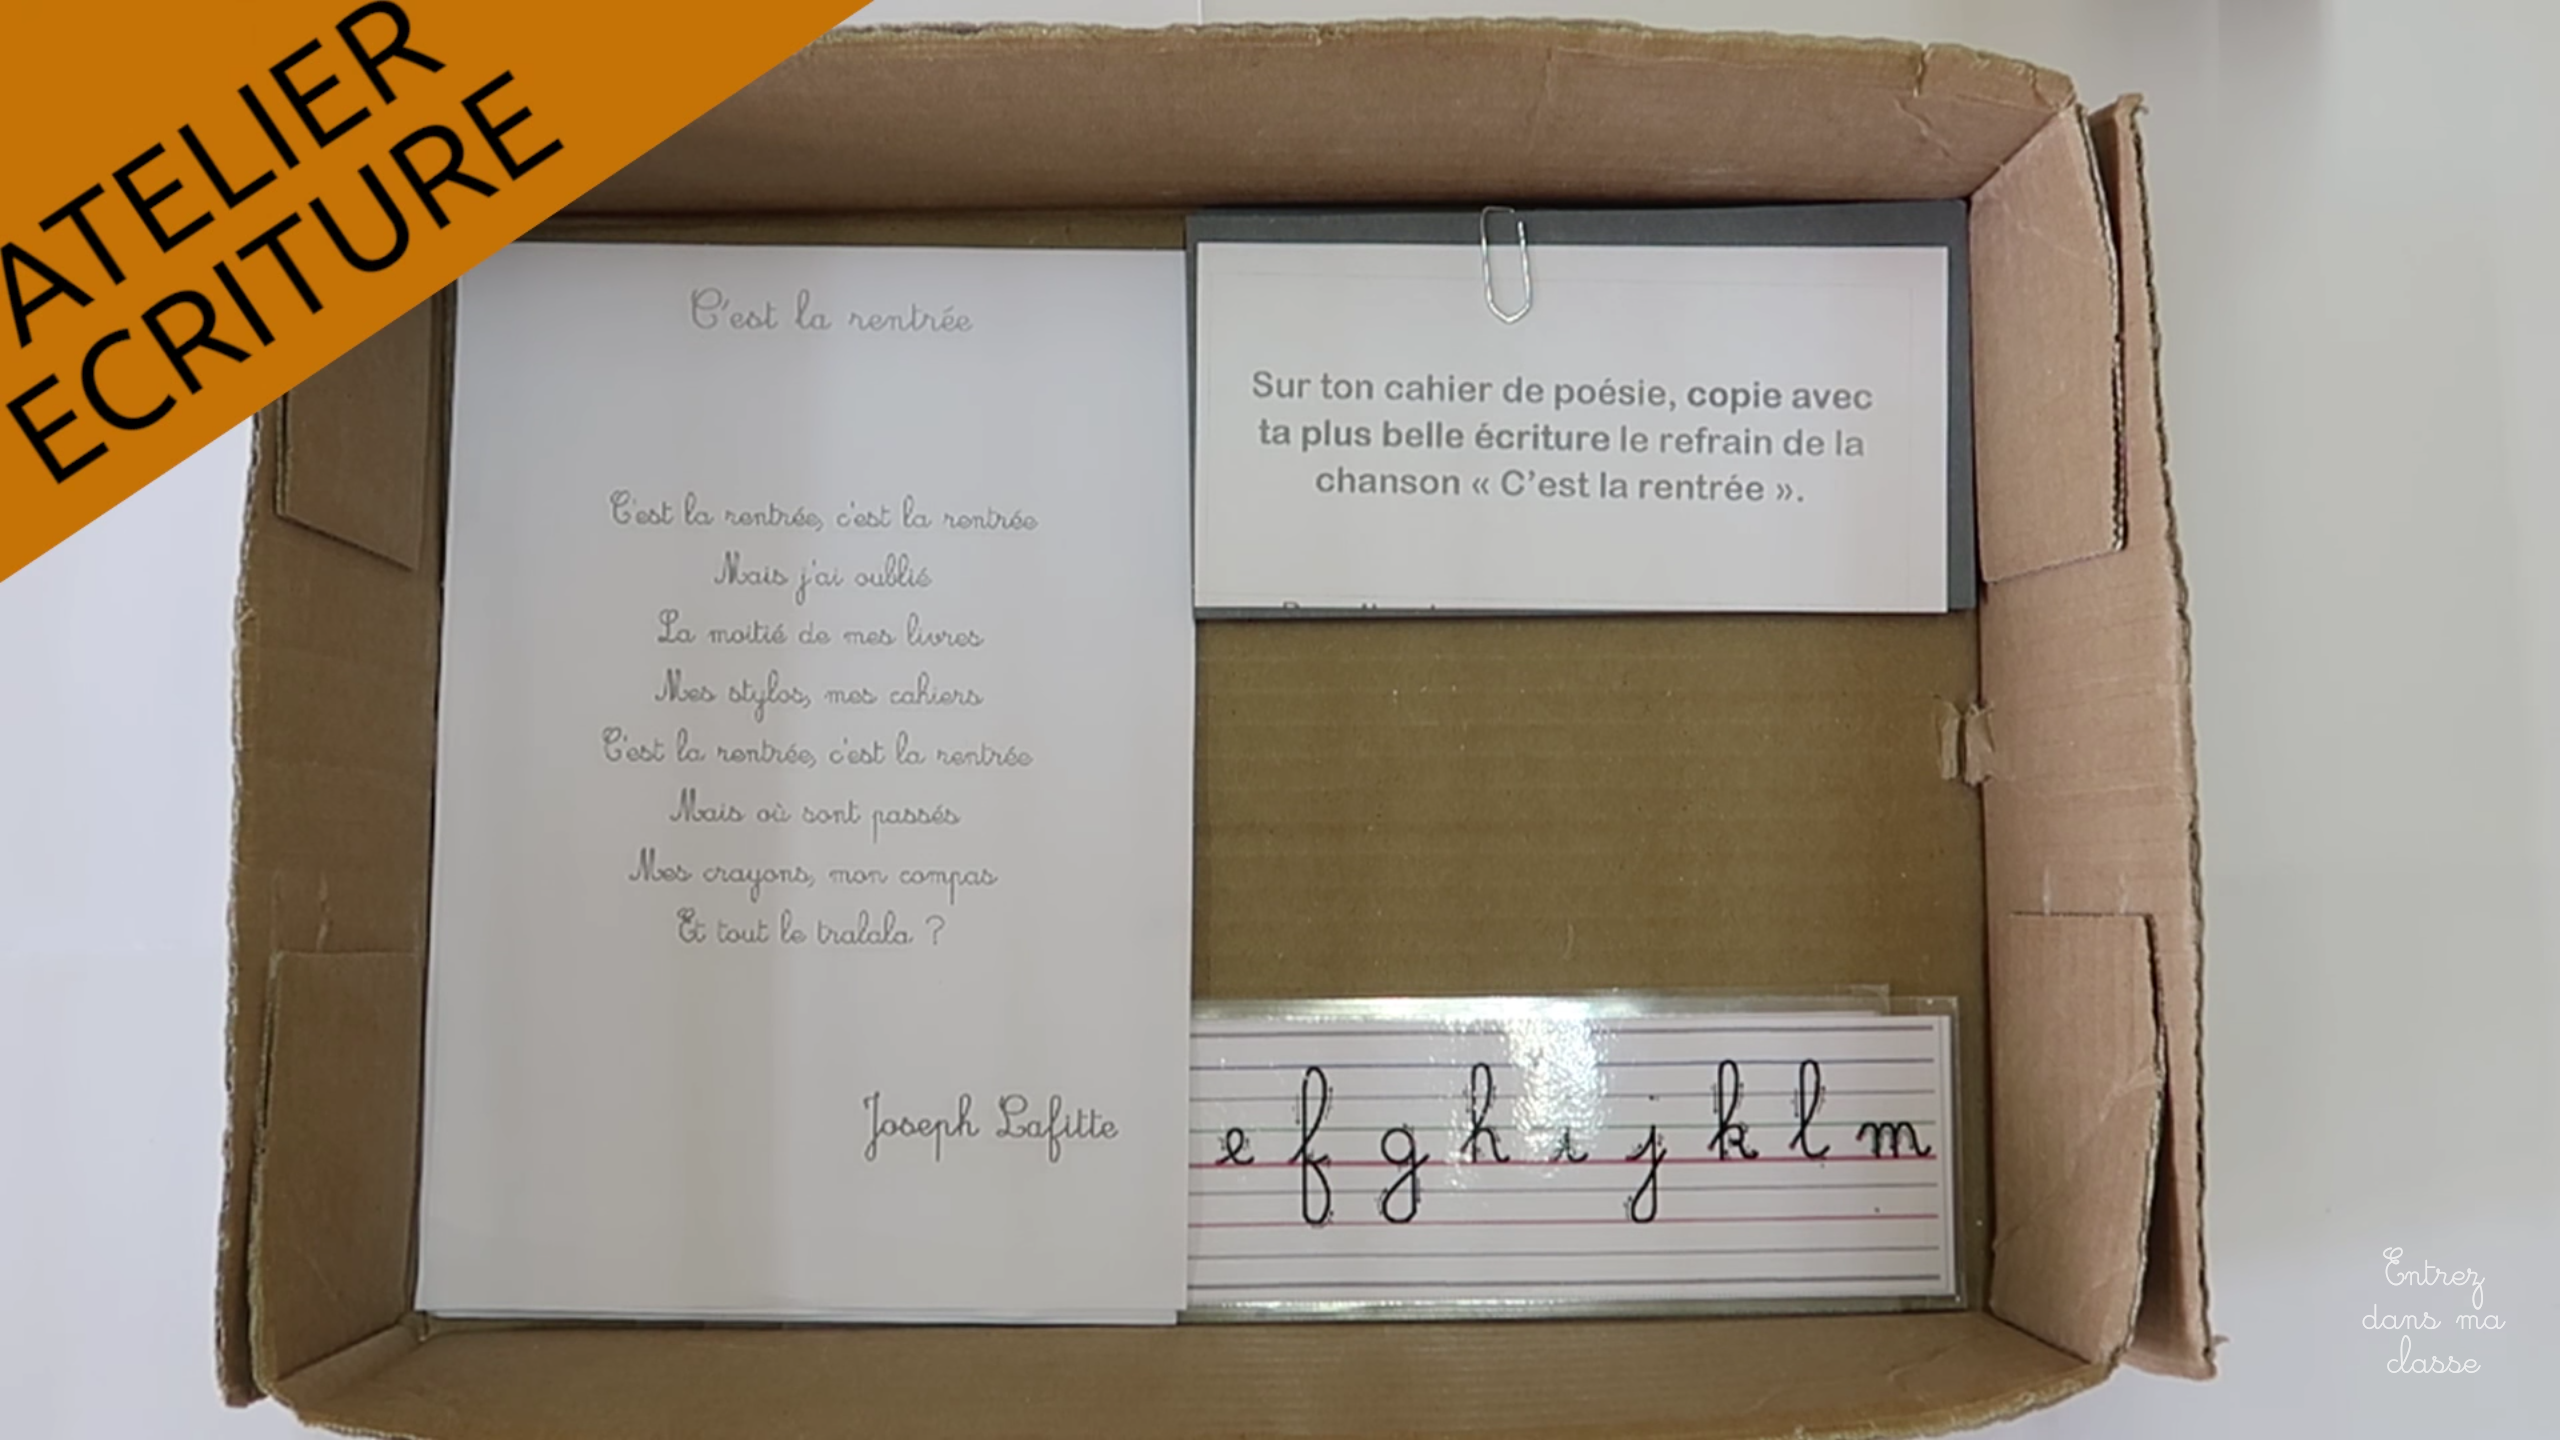 ATELIER
ECRITURE
C'est la rentrée
C'est la rentrée, c'est la rentrée
Mais j'ai oublié
La moitié de mes livres
Mes stylos, mes cahiers
C'est la rentrée, c'est la rentrée
Mais où sont passés
Mes crayons, mon compas
Et tout le tralala ?
Joseph Lafitte
Sur ton cahier de poésie, copie avec
ta plus belle écriture le refrain de la
chanson « C'est la rentrée ».
e f g h i j k l m
Entrez
dans ma
classe